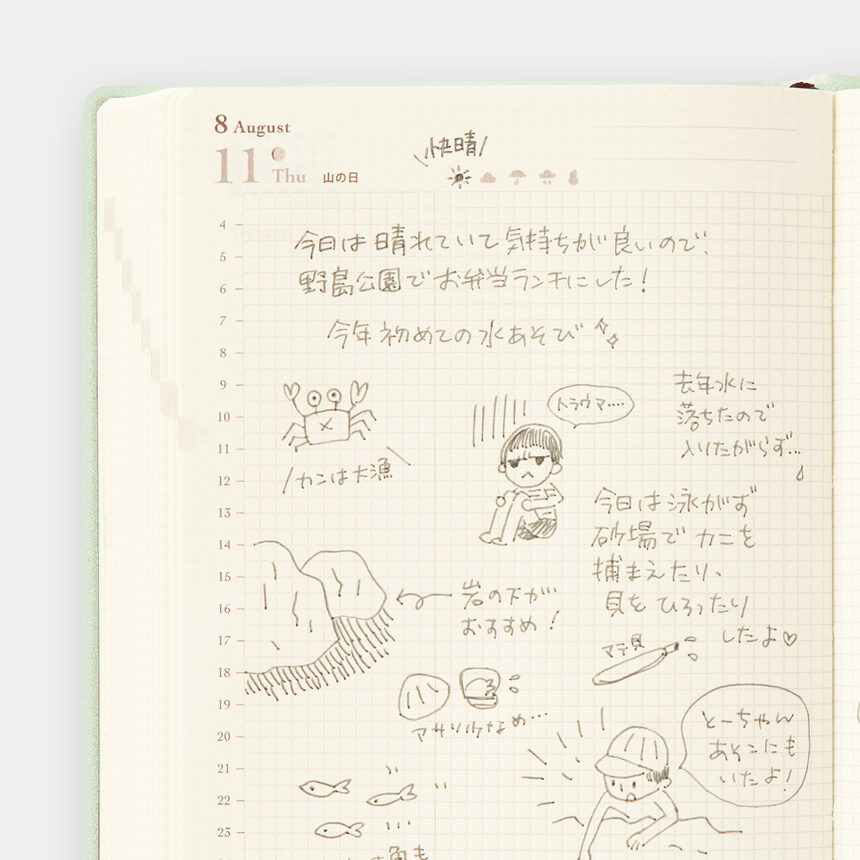 8 August
11 Thu 山の日
快晴
今日は晴れていて気持ちが良いので、
野島公園でお弁当ランチにした!
今年初めての水あそび
トラウマ....
去年水に
落ちたので
入りたがらず...
カニは大漁
今日は泳がず
砂場でカニを
捕まえたり、
貝をひろったり
したよ♡
岩の下が
おすすめ!
マテ貝
アサリ少なめ...
とーちゃん
あそこにも
いたよ!
4
5
6
7
8
9
10
11
12
13
14
15
16
17
18
19
20
21
22
23